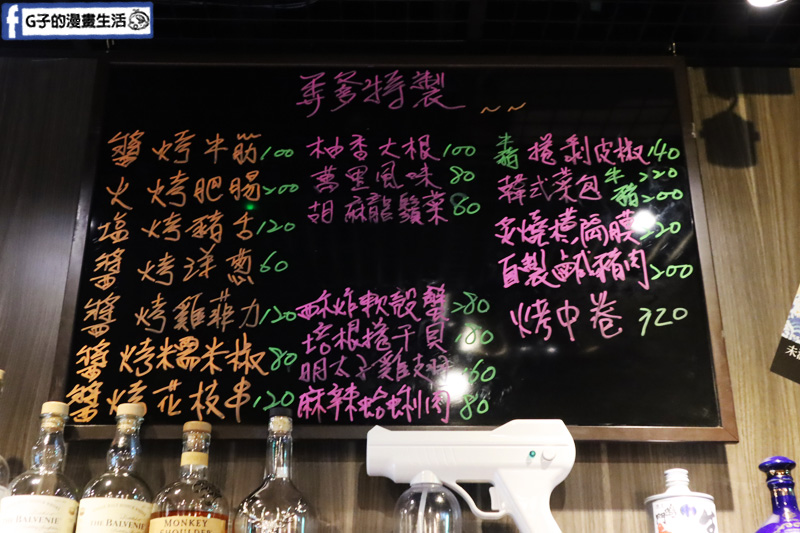 G子的漫畫生活
特製
醬烤牛筋100
火烤肥腸200
塩烤豬舌120
醬烤洋蔥60
醬烤雞菲力120
醬烤糯米椒80
醬烤花枝串120
柚香大根100
萬里風味80
胡麻龍鬚菜80
酥炸軟殼蟹280
培根捲干貝180
明太子雞支 160
麻辣蛤蜊肉80
豬捲剝皮椒140
韓式菜包 牛220
豬200
炙燒橫膈膜220
自製鹹豬肉200
烤中卷320
THE BALVENIE
THE BALVENIE
MONKEY
SHOULDER